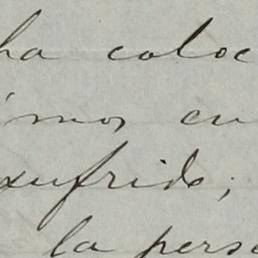 ha coloc
mos en
sufrido;
la perso